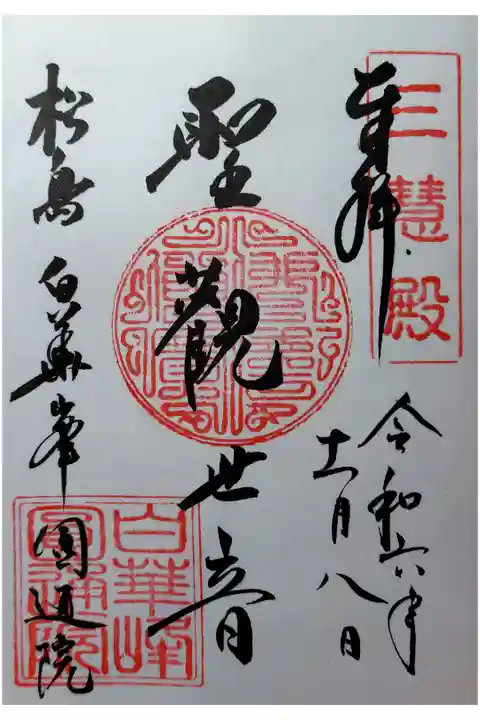 三慧殿
奉拝
令和六年
十一月八日
聖觀世音
松島 白華峯 圓通院
白華峰
圓通院